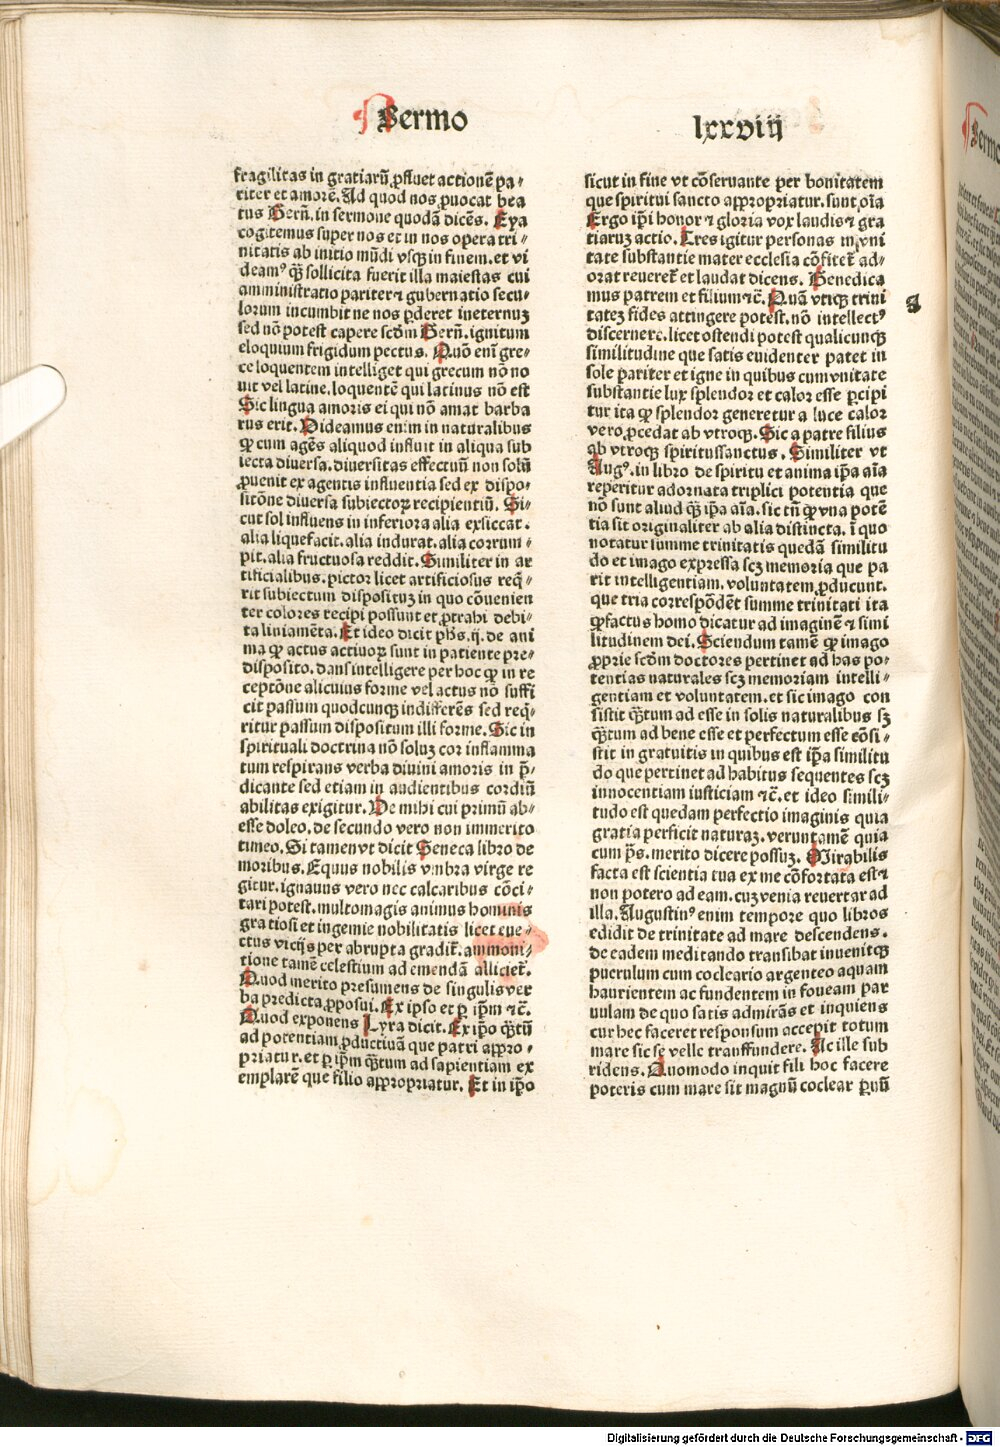 Sermo
lxxviij
fragilitas in gratiarū ꝓfluet actionē pa⸗
riter et amorē. Ad quod nos ꝓuocat bea
tus Bern̄. in sermone quodā dicēs. Eya
cogitemus super nos et in nos opera tri⸗
nitatis ab initio mūdi vsqꝫ in finem. et vi
deamꝰ qꝫ̄ sollicita fuerit illa maiestas cui
amministratio pariter ⁊ gubernatio secu⸗
lorum incumbit ne nos ꝑderet ineternuꝫ
sed nō potest capere scd̄m Bern̄. ignitum
eloquium frigidum pectus. Quō eni᷒ gre⸗
ce loquentem intelliget qui grecum nō no
uit vel latine. loquentē qui latinus nō est
Sic lingua amoris ei qui nō amat barba
rus erit. Videamus enim in naturalibus
ꝙ cum agēs aliquod influit in aliqua sub
iecta diuersa. diuersitas effectuū non solū
ꝓuenit ex agentis influentia sed ex dispo⸗
sitōne diuersa subiectoꝝ recipientiū. Si⸗
cut sol influens in inferiora alia exsiccat.
alia liquefacit. alia indurat. alia corrum⸗
pit. alia fructuosa reddit. Similiter in ar
tificialibus. pictor licet artificiosus req̄⸗
rit subiectum disposituꝫ in quo cōuenien
ter colores recipi possunt et ꝓtrahi debi⸗
ta liniamēta. Et ideo dicit ph̄s. ij. de ani
ma ꝙ actus actiuoꝝ sunt in patiente pre⸗
disposito. dans intelligere per hoc ꝙ in re
ceptōne alicuius forme vel actus nō suffi
cit passum quodcunqꝫ indifferēs sed req̄⸗
ritur passum dispositum illi forme. Sic in
spirituali doctrina nō soluꝫ cor inflamma
tum respirans verba diuini amoris in p̄⸗
dicante sed etiam in audientibus cordiū
abilitas exigitur. De mihi cui primū ab⸗
esse doleo. de secundo vero non immerito
timeo. Si tamen vt dicit Seneca libro de
moribus. Equus nobilis vmbra virge re
gitur. ignauus vero nec calcaribus cōci⸗
tari potest. multomagis animus hominis
gratiosi et ingenie nobilitatis licet eue⸗
ctus vicijs per abrupta gradit᷑. ammoni⸗
tione tamē celestium ad emendā alliciet᷑.
Quod merito presumens de singulis ver
ba predicta ꝓposui. Ex ipso et ꝑ ip̄m ⁊c̄.
Quod exponens Lyra dicit. Ex ip̄o qꝫ̄tū
ad potentiam ꝓductiuā que patri appro⸗
priatur. et ꝑ ip̄m qꝫ̄tum ad sapientiam ex
emplarē que filio appropriatur. Et in ip̄o
sicut in fine vt cōseruante per bonitatem
que spiritui sancto appropriatur. sunt oi̅a
Ergo ip̄i honor ⁊ gloria vox laudis ⁊ gra
tiaruꝫ actio. Tres igitur personas in vni
tate substantie mater ecclesia cōfitet᷑ ad⸗
orat reueret᷑ et laudat dicens. Benedica
mus patrem et filium ⁊c̄. Quā vtiqꝫ trini
a
tateꝫ fides attingere potest. nō intellectꝰ
discernere. licet ostendi potest qualicunqꝫ
similitudine que satis euidenter patet in
sole pariter et igne in quibus cum vnitate
substantie lux splendor et calor esse ꝑcipi
tur ita ꝙ splendor generetur a luce calor
vero ꝓcedat ab vtroqꝫ. Sic a patre filius
ab vtroqꝫ spiritussanctus. Similiter vt
Augꝰ. in libro de spiritu et anima ip̄a ai̅a
reperitur adornata triplici potentia que
nō sunt aliud qꝫ̄ ip̄a ai̅a. sic tn̄ ꝙ vna potē
tia sit originaliter ab alia distincta. ī quo
notatur summe trinitatis quedā similitu
do et imago expressa scꝫ memoria que pa
rit intelligentiam. voluntatem ꝓducunt.
que tria correspōdēt summe trinitati ita
ꝙ factus homo dicatur ad imaginē ⁊ simi
litudinem dei. Sciendum tamē ꝙ imago
ꝓprie scd̄m doctores pertinet ad has po⸗
tentias naturales scꝫ memoriam intelli⸗
gentiam et voluntatem. et sic imago con
sistit qꝫ̄tum ad esse in solis naturalibus sꝫ
qꝫ̄tum ad bene esse et perfectum esse cōsi⸗
stit in gratuitis in quibus est ip̄a similitu
do que pertinet ad habitus sequentes scꝫ
innocentiam iusticiam ⁊c̄. et ideo simili⸗
tudo est quedam perfectio imaginis quia
gratia perficit naturaꝫ. veruntamē quia
cum p̄s. merito dicere possuꝫ. Mirabilis
facta est scientia tua ex me cōfortata est ⁊
non potero ad eam. cuꝫ venia reuertar ad
illa. Augustinꝰ enim tempore quo libros
edidit de trinitate ad mare descendens.
de eadem meditando transibat inuenitqꝫ
puerulum cum cocleario argenteo aquam
haurientem ac fundentem in foueam par
uulam de quo satis admirās et inquiens
cur hec faceret responsum accepit totum
mare sic se velle transfundere. Ac ille sub
ridens. Quomodo inquit fili hoc facere
poteris cum mare sit magnū coclear ꝑuū
Digitalisierung gefördert durch die Deutsche Forschungsgemeinschaft - DFG